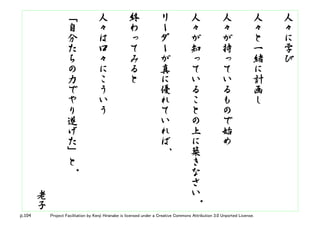 人々に学び
人々と一緒に計画し
人々が持っているもので始め
人々が知っていることの上に築きなさい。
リーダーが真に優れていれば、
終わってみると
人々は口々にこういう
「自分たちの力でやり遂げた」と。
老子
p.104
Project Facilitation by Kenji Hiranabe is licensed under a Creative Commons Attribution 3.0 Unported License.